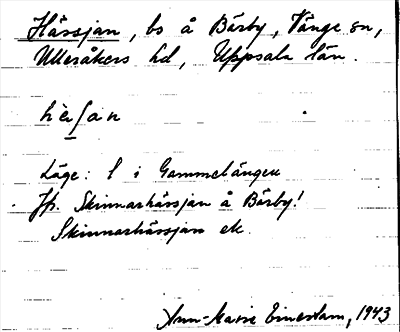 Hässjan, bs å Bärby, Vänge sn,
Ulleråkers hd, Uppsala län.
hèʃan
Läge: l i Gammelängen
Jfr. Skinnarhässjan å Bärby!
Skinnarhässjan ek.
Ann-Marie Einerstam, 1943